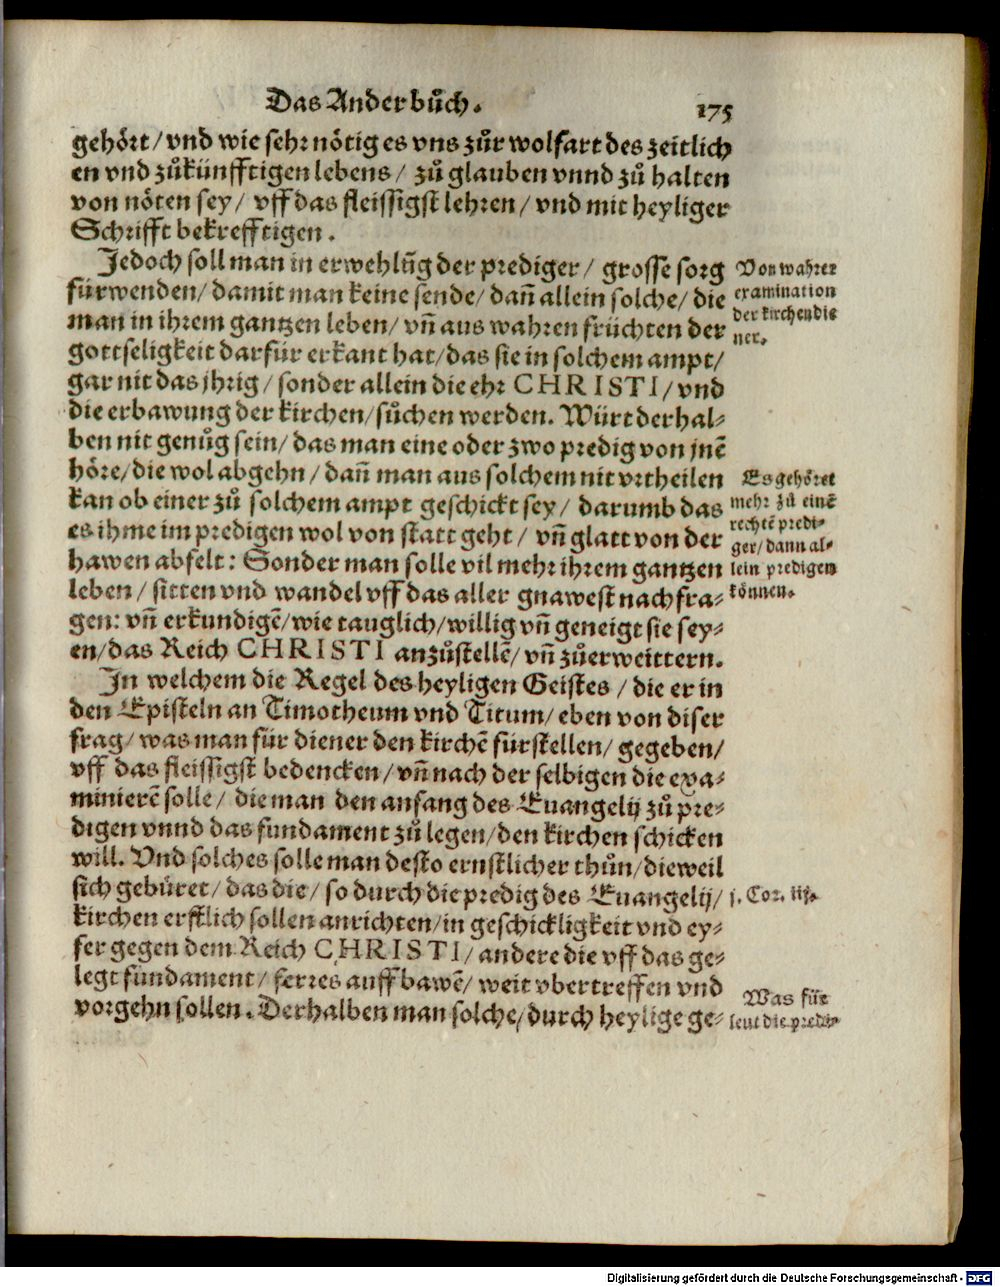 Das Ander bůch. 175
gehört/ vnd wie sehr nötig es vns zůr wolfart des zeitlich
en vnd zůkünfftigen lebens/ zů glauben vnnd zů halten
von nöten sey/ vff das fleissigst lehren/ vnd mit heyliger
Schrifft bekrefftigen.
Jedoch soll man in erwehlũg der prediger/ grosse sorg
fürwenden/ damit man keine sende/ dañ allein solche/ die
man in ihrem gantzen leben/ vñ aus wahren früchten der
gottseligkeit darfür erkant hat/ das sie in solchem ampt/
gar nit das jhrig/ sonder allein die ehr CHRISTI/ vnd
die erbawung der kirchen/ sůchen werden. Würt derhal-
ben nit genůg sein/ das man eine oder zwo predig von jnẽ
höre/ die wol abgehn/ dañ man aus solchem nit vrtheilen
kan ob einer zů solchem ampt geschickt sey/ darumb das
es ihme im predigen wol von statt geht/ vñ glatt von der
hawen abfelt: Sonder man solle vil mehr ihrem gantzen
leben/ sitten vnd wandel vff das aller gnawest nachfra-
gen: vñ erkundigẽ/ wie tauglich/ willig vñ geneigt sie sey-
en/ das Reich CHRISTI anzůstellẽ/ vñ zůerweittern.
In welchem die Regel des heyligen Geistes/ die er in
den Episteln an Timotheum vnd Titum/ eben von diser
frag/ was man für diener den kirchẽ fürstellen/ gegeben/
vff das fleissigst bedencken/ vñ nach der selbigen die exa-
minierẽ solle/ die man den anfang des Euangelij zů pre-
digen vnnd das fundament zů legen/ den kirchen schicken
will. Vnd solches solle man desto ernstlicher thůn/ dieweil
sich gebüret/ das die/ so durch die predig des Euangelij/
kirchen erstlich sollen anrichten/ in geschickligkeit vnd ey-
fer gegen dem Reich CHRISTI/ andere die vff das ge-
legt fundament/ ferres auff bawẽ/ weit vbertreffen vnd
vorgehn sollen. Derhalben man solche/ durch heylige ge-
Von wahrer
examination
der kirchendie
ner.
Es gehöret
mehr zů einẽ
rechtẽ predi-
ger/ dann al-
lein predigen
können.
j. Cor. iij.
Was für
leut die predi-
Digitalisierung gefördert durch die Deutsche Forschungsgemeinschaft - DFG